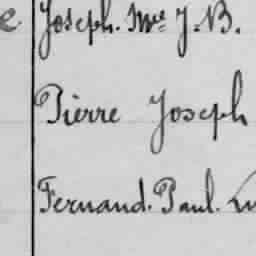 Joseph. Mie J. B.
Pierre Joseph
Fernand. Paul.